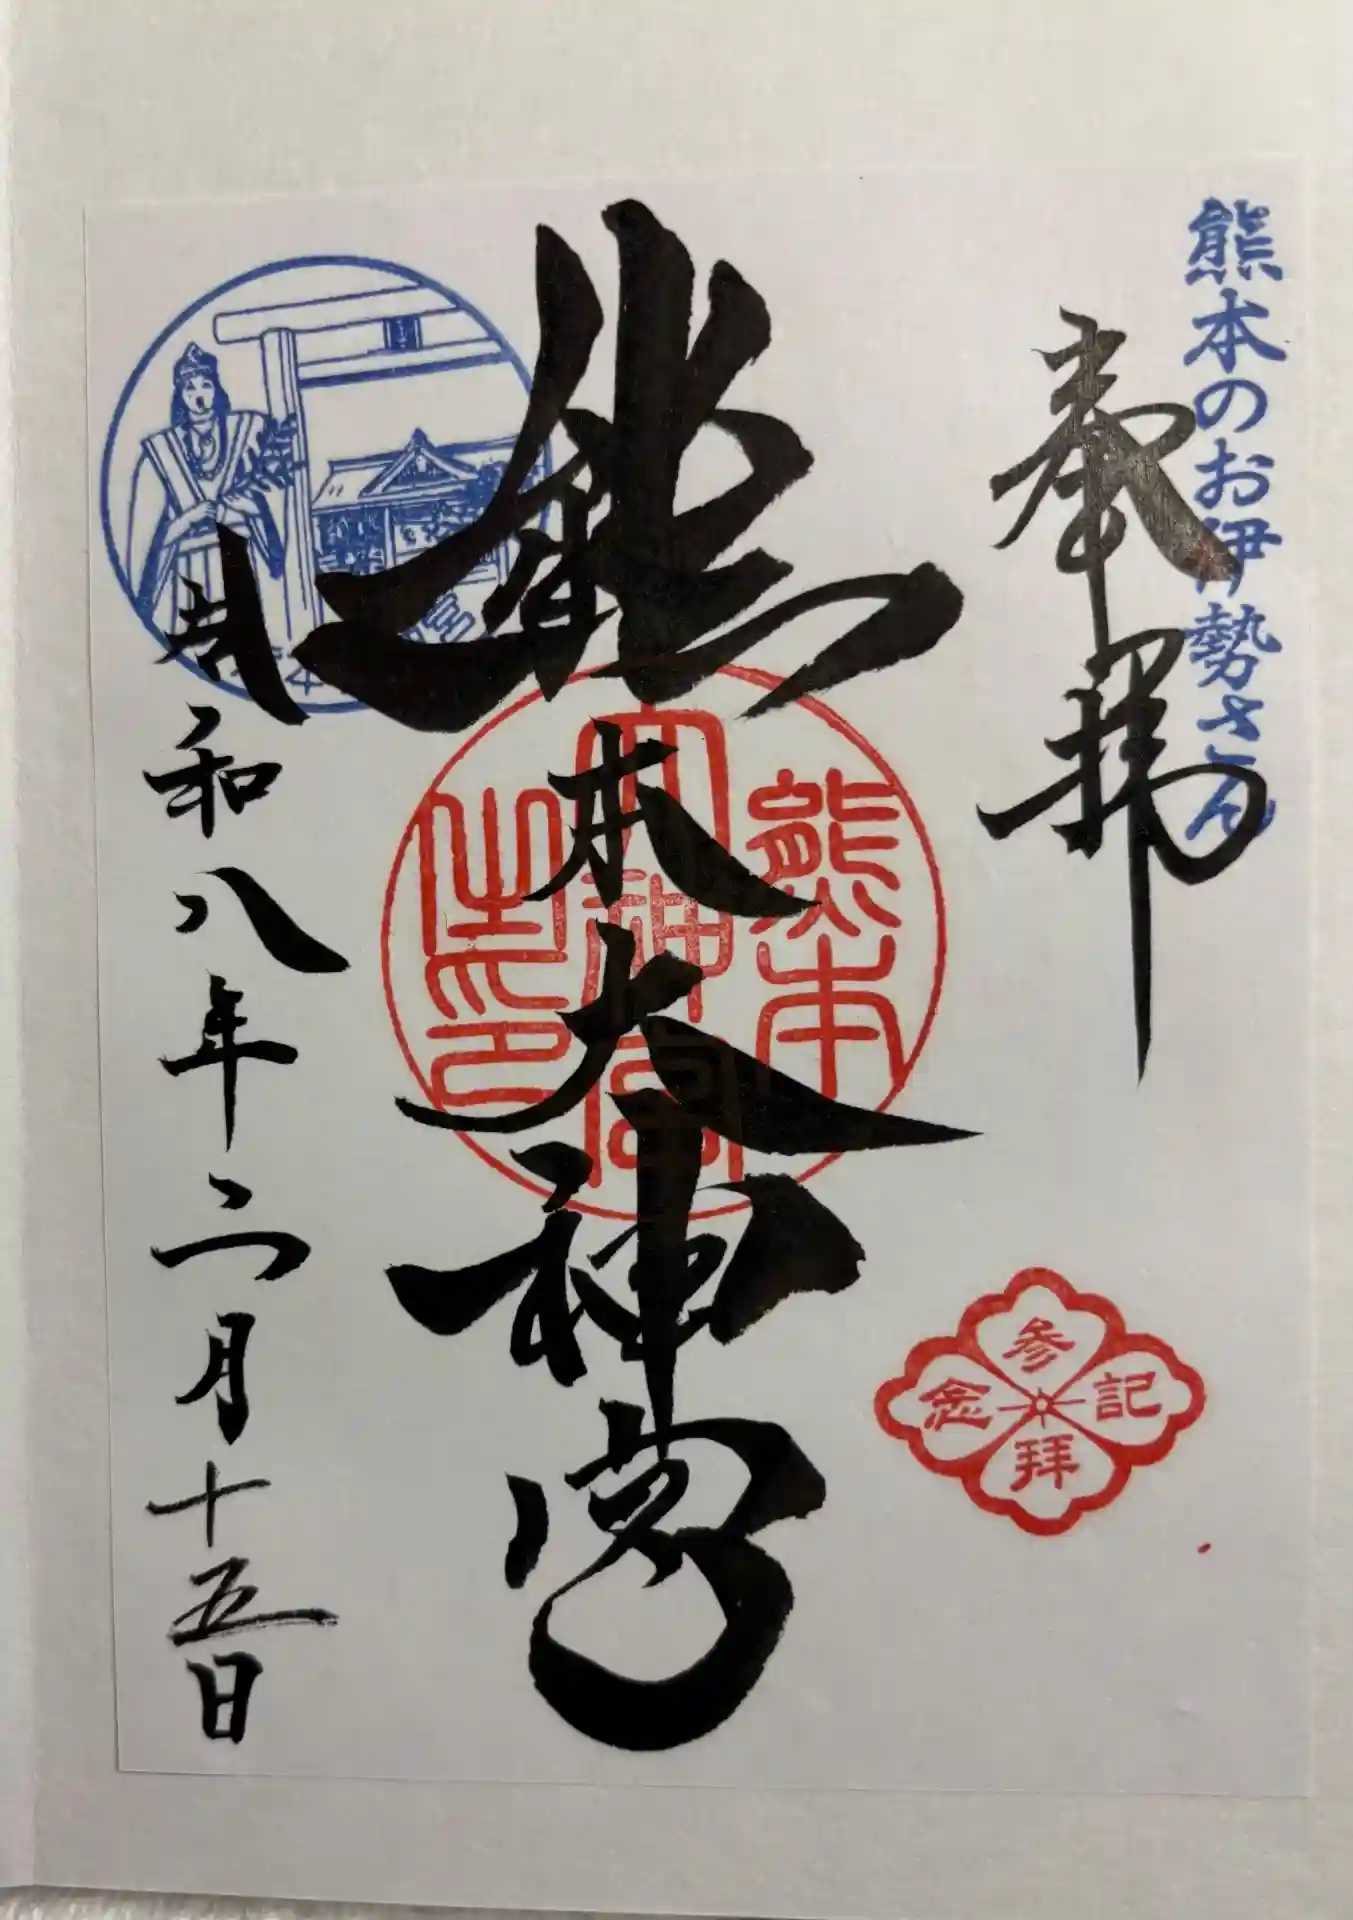 熊本のお伊勢さん
奉拝
熊本大神宮
令和八年二月十五日
熊本
大神宮
之印
参拝
記念